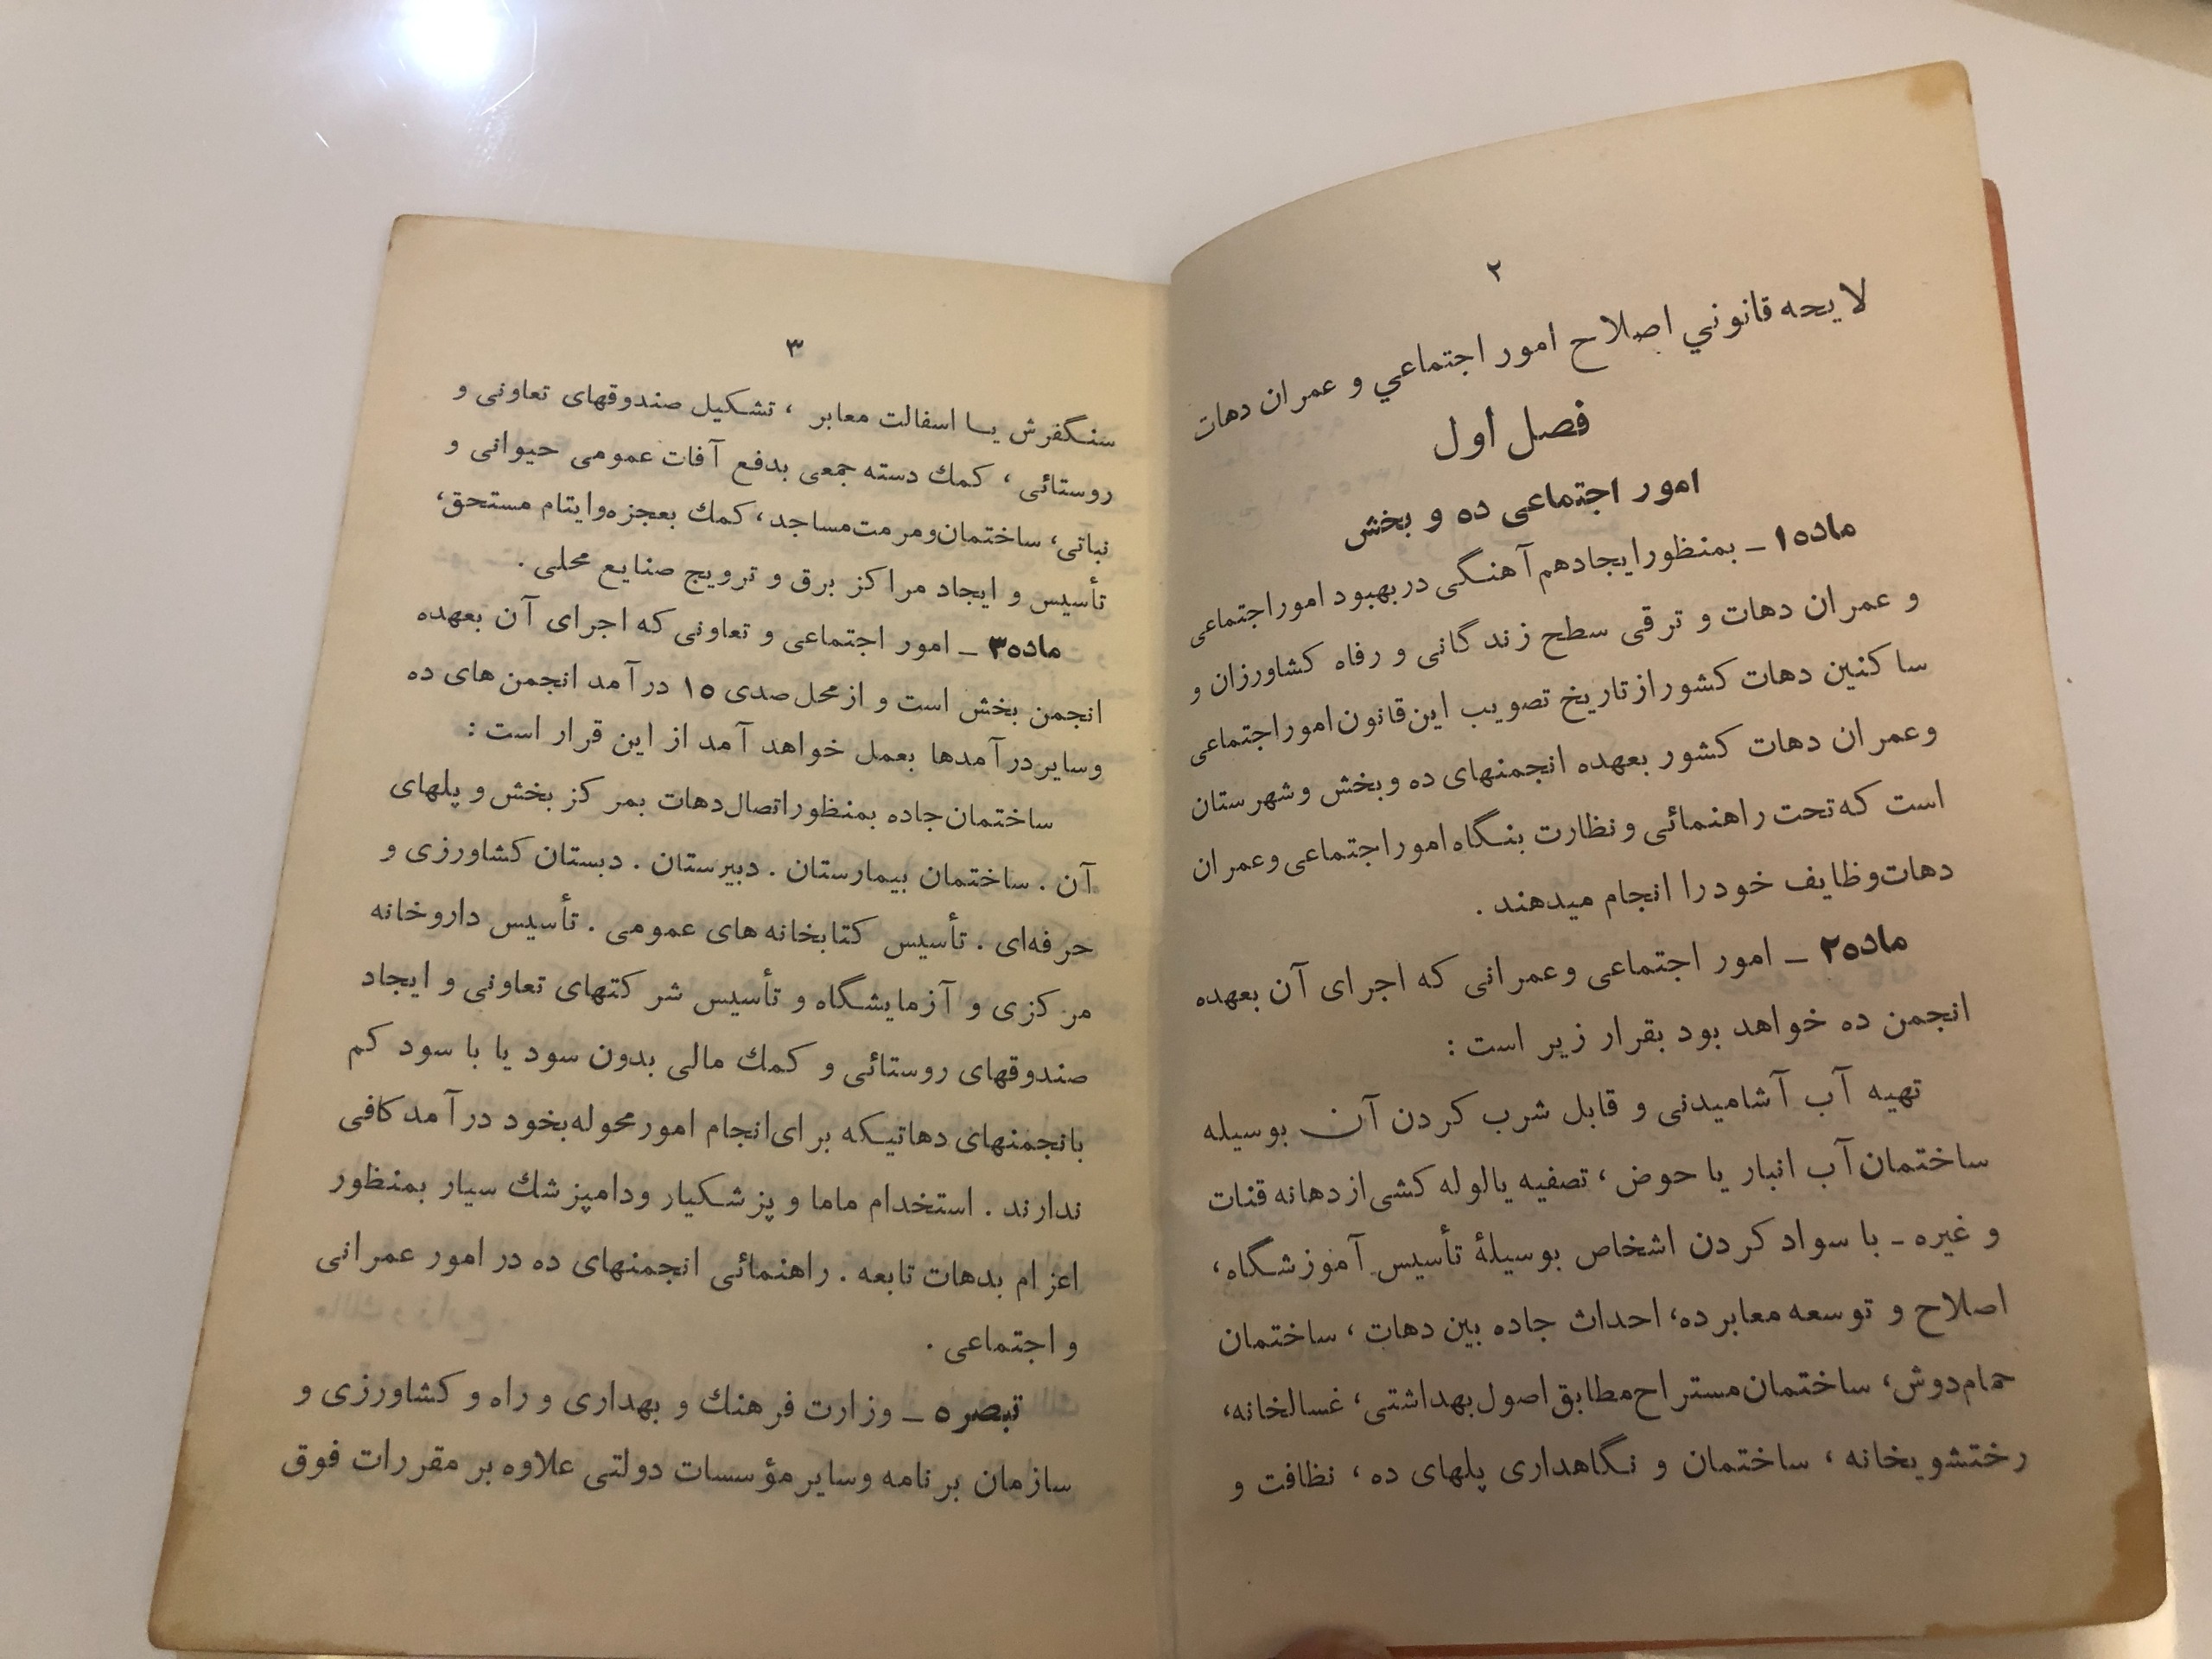 ۲
لايحه قانوني اصلاح امور اجتماعي و عمران دهات
فصل اول
امور اجتماعی ده و بخش
ماده۱ ـ بمنظورايجادهم‌آهنگی در بهبود امور اجتماعی
و عمران دهات و ترقی سطح زندگانی و رفاه كشاورزان و
ساكنين دهات كشور از تاريخ تصويب اين قانون امور اجتماعی
وعمران دهات كشور بعهده انجمنهای ده و بخش و شهرستان
است كه تحت راهنمائی و نظارت بنگاه امور اجتماعی و عمران
دهات وظايف خود را انجام ميدهند .
ماده۲ ـ امور اجتماعی وعمرانی كه اجرای آن بعهده
انجمن ده خواهد بود بقرار زير است :
تهيه آب آشاميدنی و قابل شرب كردن آن بوسيله
ساختمان آب انبار يا حوض ، تصفيه يا لوله كشی از دهانه قنات
و غيره ـ با سواد كردن اشخاص بوسيلهٔ تأسيس آموزشگاه،
اصلاح و توسعه معابر ده، احداث جاده بين دهات ، ساختمان
حمام دوش، ساختمان مستراح مطابق اصول بهداشتی، غسالخانه،
رختشويخانه ، ساختمان و نگاهداری پلهای ده ، نظافت و
۳
سنگفرش يا اسفالت معابر ، تشكيل صندوقهای تعاونی و
روستائی ، كمك دسته جمعی بدفع آفات عمومی حيوانی و
نباتی، ساختمان و مرمت مساجد، كمك بعجزه و ايتام مستحق،
تأسيس و ايجاد مراكز برق و ترويج صنايع محلی .
ماده۳ ـ امور اجتماعی و تعاونی كه اجرای آن بعهده
انجمن بخش است و از محل صدی ۱۵ درآمد انجمن های ده
وساير درآمدها بعمل خواهد آمد از اين قرار است :
ساختمان جاده بمنظور اتصال دهات بمركز بخش و پلهای
آن . ساختمان بيمارستان . دبيرستان . دبستان كشاورزی و
حرفه‌ای . تأسيس كتابخانه های عمومی . تأسيس داروخانه
مركزی و آزمايشگاه و تأسيس شركتهای تعاونی و ايجاد
صندوقهای روستائی و كمك مالی بدون سود يا با سود كم
بانجمنهای دهاتيكه برای انجام امور محوله بخود درآمد كافی
ندارند . استخدام ماما و پزشكيار ودامپزشك سيار بمنظور
اعزام بدهات تابعه . راهنمائی انجمنهای ده در امور عمرانی
و اجتماعی .
تبصره ـ وزارت فرهنك و بهداری و راه و كشاورزی و
سازمان برنامه وساير مؤسسات دولتی علاوه بر مقررات فوق